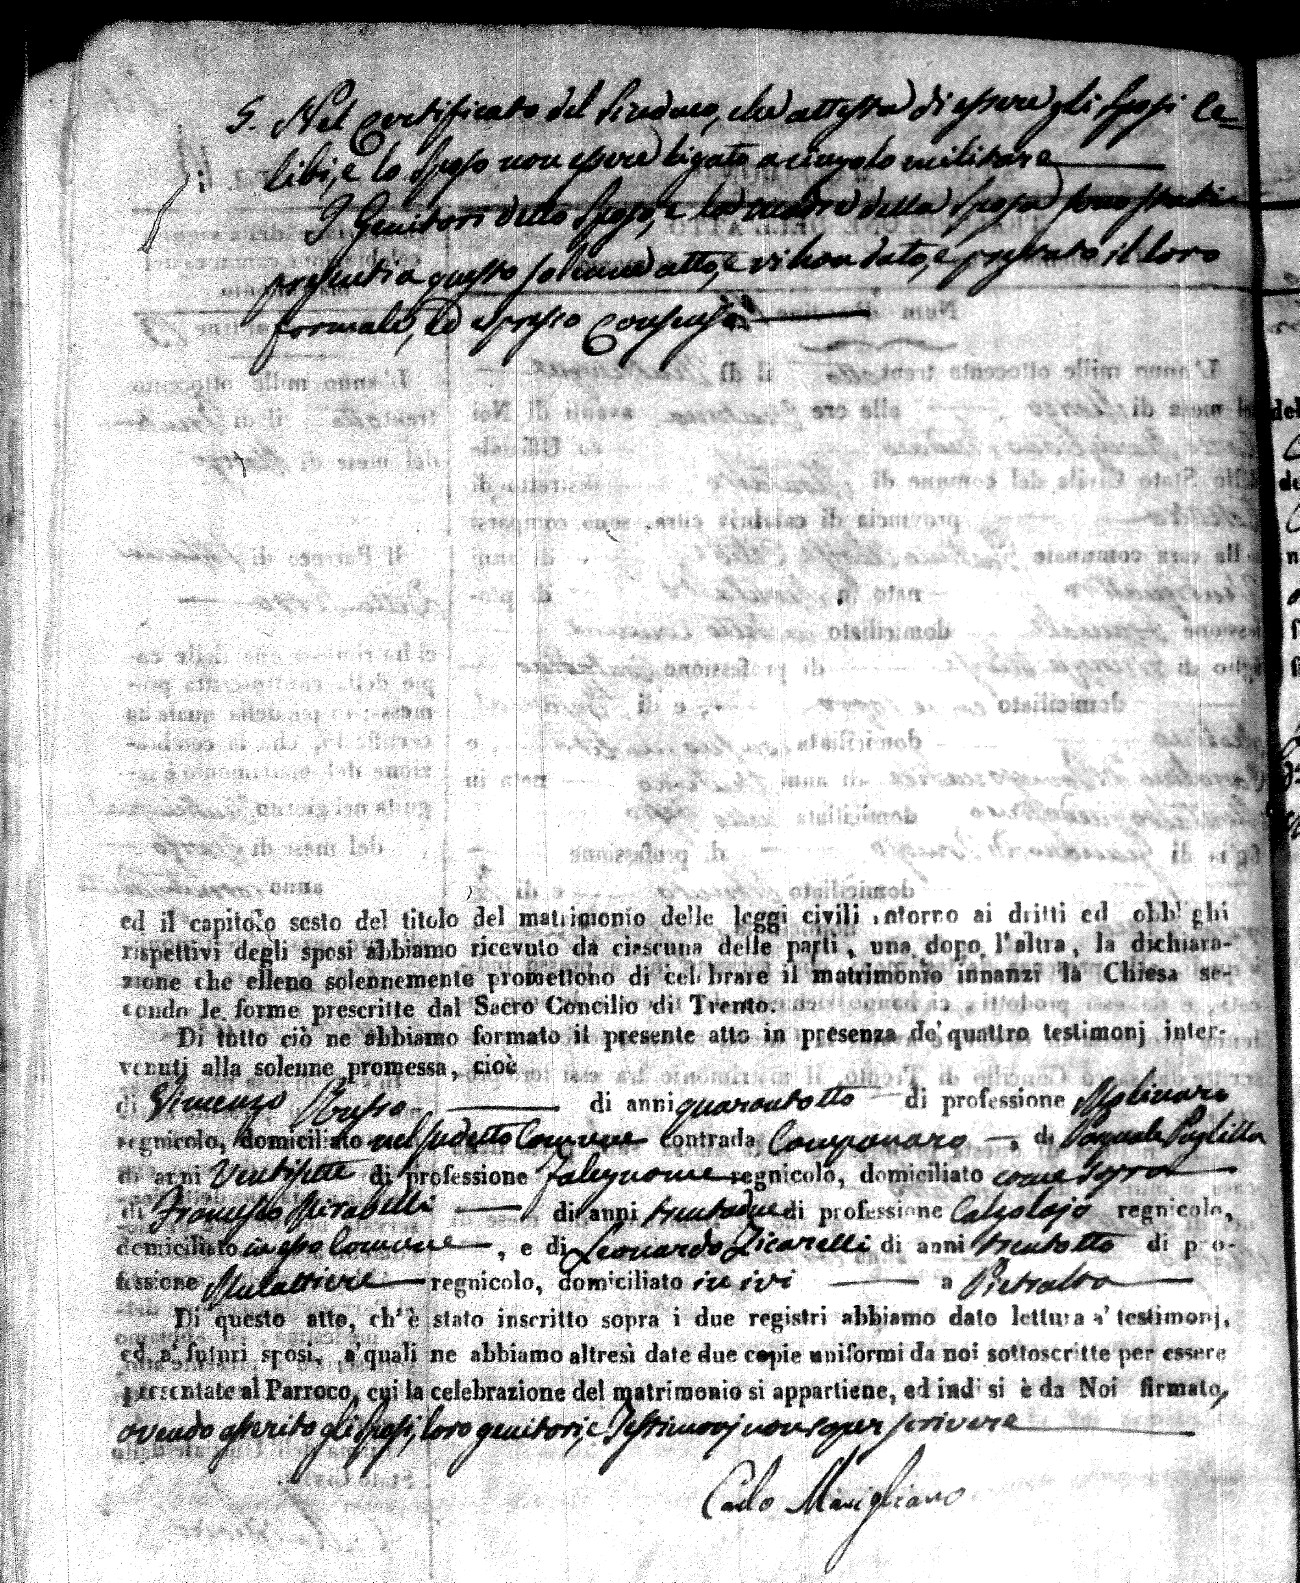 5. Nel Certificato del Sindaco, che attesta di essere gli Sposi Ce=
libi, e lo Sposo non essere ligato a vincolo militare
I Genitori dello Sposo, e la madre della Sposa sono stati
presenti a questo solenne atto, e vi han dato, e prestato il loro
formale, ed espresso Consenso
ed il capitolo sesto del titolo del matrimonio delle leggi civili intorno ai dritti ed obblighi
rispettivi degli sposi abbiamo ricevuto da ciascuna delle parti, una dopo l'altra, la dichiara-
zione che elleno solennemente promettono di celebrare il matrimonio innanzi la Chiesa se-
condo le forme prescritte dal Sacro Concilio di Trento.
Di tutto ciò ne abbiamo formato il presente atto in presenza de' quattro testimonj inter-
venuti alla solenne promessa, cioè
di Vincenzo Russo di anni quarantotto di professione Molinaro
regnicolo, domiciliato nel sudetto Comune contrada Campanaro, di Pasquale Puglitta
di anni Ventisette di professione Falegname regnicolo, domiciliato come sopra
di Francesco Mirabelli di anni trentadue di professione Calzolajo regnicolo,
domiciliato in esso Comune, e di Leonardo Zicarelli di anni trentotto di pro-
fessione Mulattiere regnicolo, domiciliato in ivi a Pietralta
Di questo atto, ch'è stato inscritto sopra i due registri abbiamo dato lettura a' testimonj,
ed a' futuri sposi, a' quali ne abbiamo altresì date due copie uniformi da noi sottoscritte per essere
presentate al Parroco, cui la celebrazione del matrimonio si appartiene, ed indi si è da Noi firmato,
avendo asserito gli Sposi, loro genitori, e Testimonj non saper scrivere
Carlo Marigliano